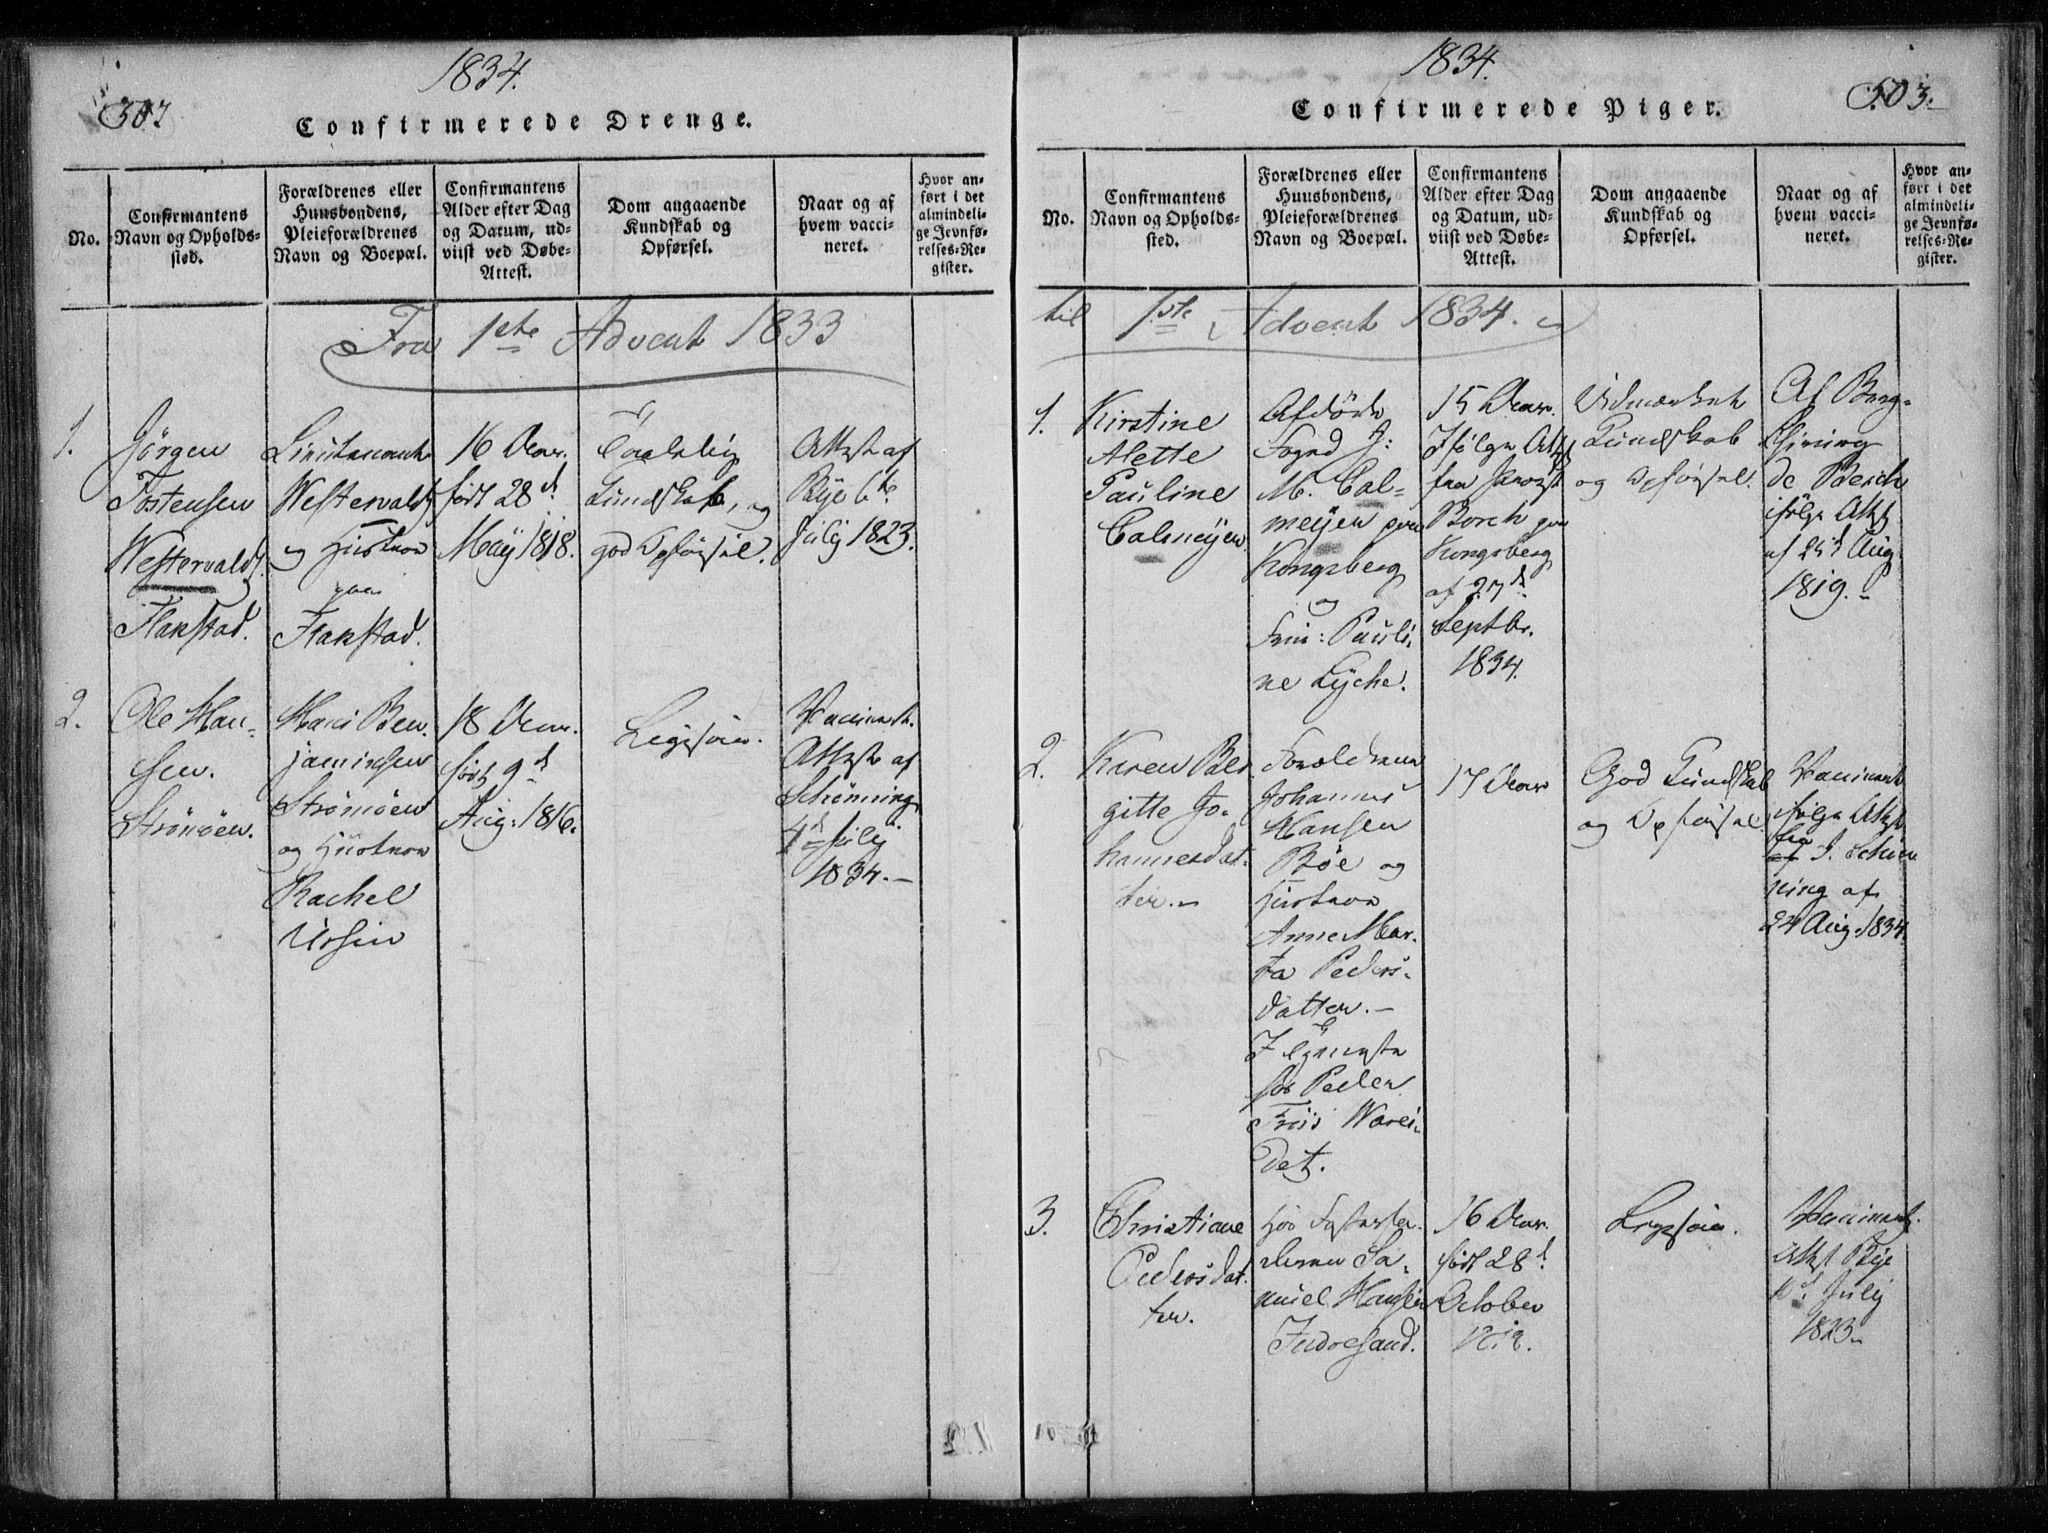 1834.
Confirmerede Drenge.
No.
Confirmantens
Navn og Opholds-
sted.
Forældrenes eller
Huusbondens,
Pleieforældrenes
Navn og Boepæl.
Confirmantens
Alder efter Dag
og Datum, ud-
viist ved Døbe-
Attest.
Dom angaaende
Kundskab og
Opførsel.
Naar og af
hvem vacci-
neret.
Hvor an-
ført i det
almindeli-
ge Jevnfø-
relses-Re-
gister.
Fra 1ste Advent 1833
1.
Jörgen
Tostensen
Westervald
Flakstad.
Lieutenant
Westervald
og Hustrue
paa
Flakstad.
16 Aar.
født 28d
Maij 1818.
Taalelig
Kundskab, og
god Opførsel.
Attest af
Bye 6te
Julij 1823.
2.
Ole Han-
sen.
Strömöen.
Hans Ben-
jaminsen
Strömöen
og Hustrue
Rachel
Ursin
18 Aar.
født 9d
Aug: 1816.
Ligesaa.
Vaccinat.
Attest af
Schönning
4d Julij
1834.-
1834.
503.
Confirmerede Piger.
No.
Confirmantens
Navn og Opholds-
sted.
Forældrenes eller
Huusbondens,
Pleieforældrenes
Navn og Boepæl.
Confirmantens
Alder efter Dag
og Datum, ud-
viist ved Døbe-
Attest.
Dom angaaende
Kundskab og
Opførsel.
Naar og af
hvem vacci-
neret.
Hvor an-
ført i det
almindeli-
ge Jevnfø-
relses-Re-
gister.
til 1ste Advent 1834.
1.
Kirstine
Alette
Pauline
Calmeijer
Afdöde
Fogd J:
M. Cal-
meijer paa
Kongsberg
og
Fru: Pauli-
ne Lyche.
15 Aar.
Ifölge Attest
fra Provst
Borch paa
Kongsberg
af 27d
Septbr.
1834.
Udmærket
Kundskab
og Opførsel.
de Besche
ifölge Attest
af 25d Aug
1819.-
2.
Karen Ber
gitte Jo-
hannesdat-
ter.-
Forældrene
Johannes
Hansen
Böe og
Hustrue
Anne Mar-
ta Peders-
datter.-
I Tjeneste
hos Peder
Friis Warei-
det.
17 Aar
God Kundskab
og Opførsel.
Vaccinent
ifölge Attest
fra J. Schön
ning af
24 Aug. 1834.
3.
Christiane
Pedersdat-
ter.
Hos Fosterfor-
ældrene Sa-
muel Hansen
Indresand.
16 Aar.
født 28d
October
1818.
Ligesaa.
Vaccinent.
Attest Bye
Julij
1823-